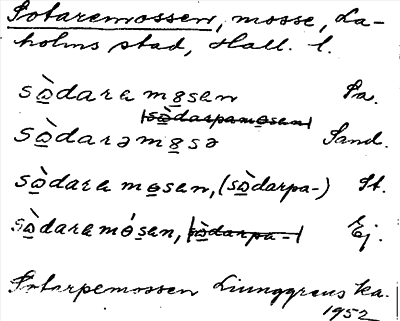 Sotaremossen, mosse, La-
holms stad, Hall. l.
sòdarɐmosɐn Pa.
sòdarpamosɐn
sòdarəmosə Sand.
sòdarɐmosɐn, (sòdarpa-) St.
sòdarɐmósɐn, sòdarpa- Ej.
Sotarpemossen Ljunggrens ka.
1952